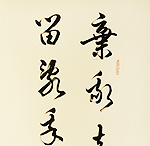 棄我去
留亂我